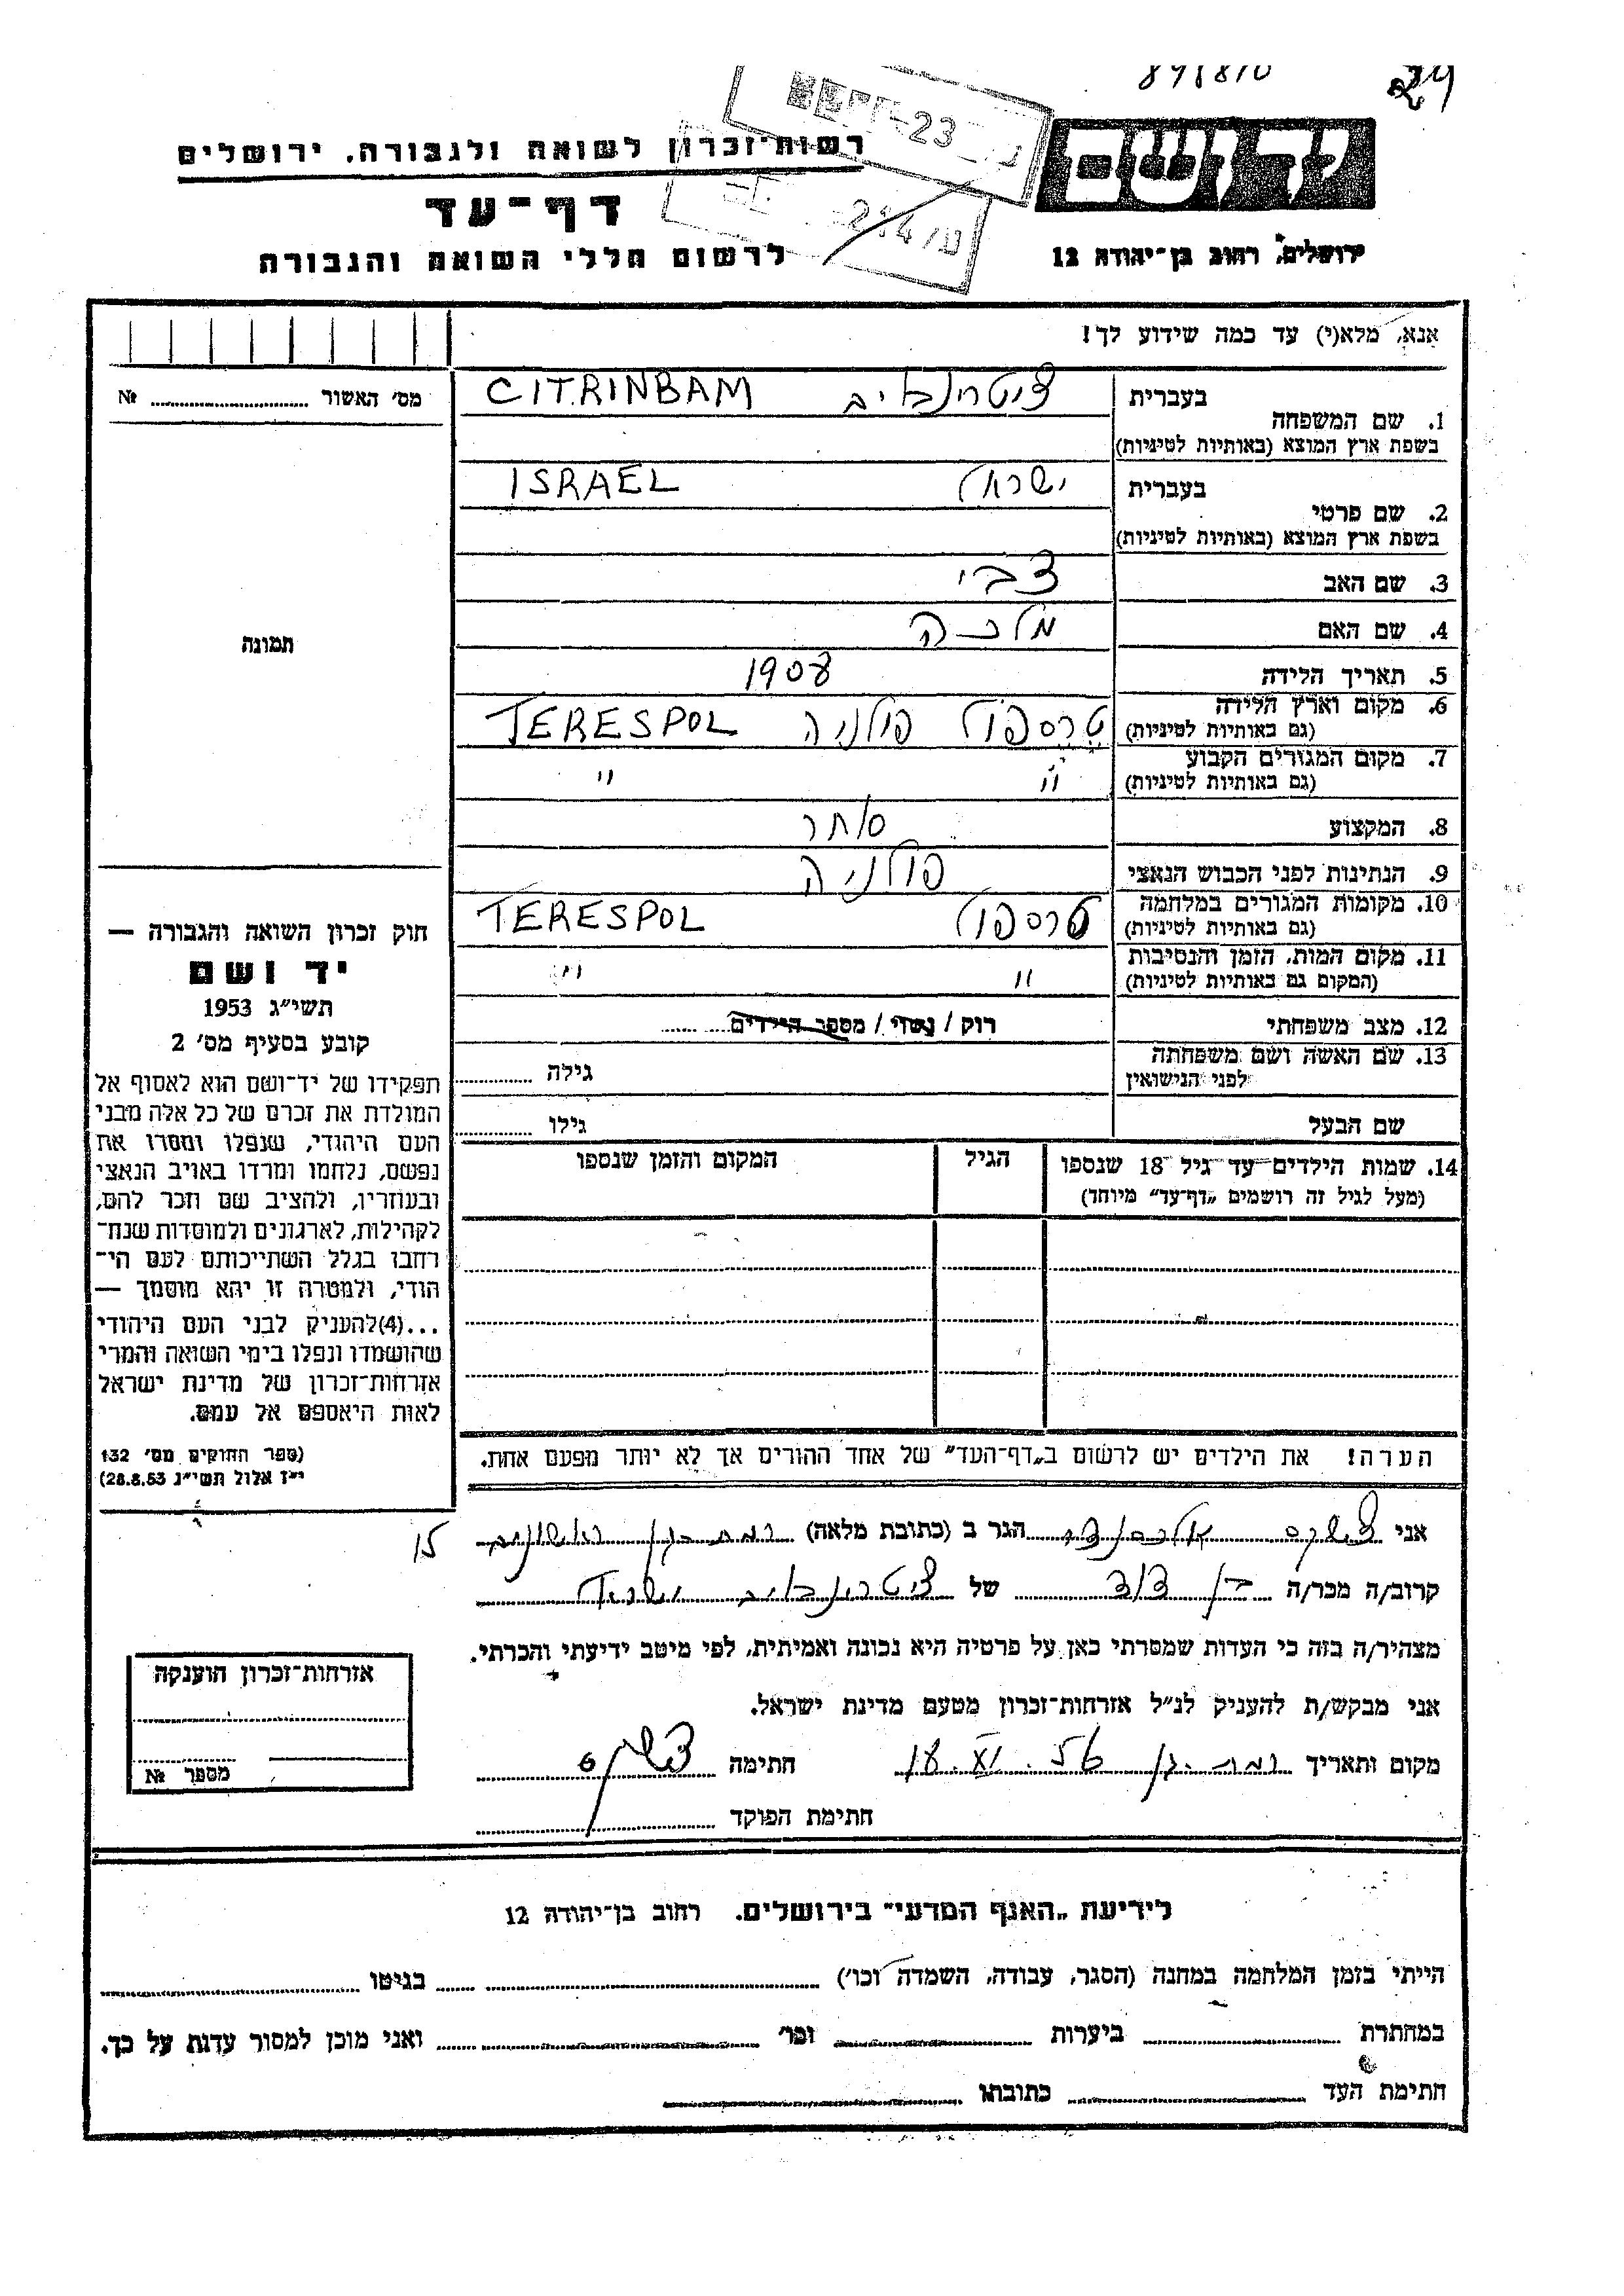 רשות־זכרון לשואה ולגבורה, ירושלים
דף־עד
לרשום חללי השואה והגבורה
יד ושם
ירושלים, רחוב בן־יהודה 12
אנא, מלא(י) עד כמה שידוע לך!
מס׳ האשור № ........
תמונה
1. שם המשפחה בעברית ציטרינבוים CITRINBAM
בשפת ארץ המוצא (באותיות לטיניות)
2. שם פרטי בעברית ישראל ISRAEL
בשפת ארץ המוצא (באותיות לטיניות)
3. שם האב צבי
4. שם האם מלכה
5. תאריך הלידה 1908
6. מקום וארץ הלידה טרספול פולניה TERESPOL
(גם באותיות לטיניות)
7. מקום המגורים הקבוע " "
(גם באותיות לטיניות)
8. המקצוע סוחר
9. הנתינות לפני הכבוש הנאצי פולניה
10. מקומות המגורים במלחמה טרספול TERESPOL
(גם באותיות לטיניות)
11. מקום המות, הזמן והנסיבות " "
(המקום גם באותיות לטיניות)
12. מצב משפחתי רוק / נשוי / מספר הילדים ........
13. שם האשה ושם משפחתה גילה ........
לפני הנישואין
שם הבעל גילו ........
14. שמות הילדים עד גיל 18 שנספו הגיל המקום והזמן שנספו
(מעל לגיל זה רושמים „דף־עד” מיוחד)
הערה! את הילדים יש לרשום ב„דף־העד” של אחד ההורים אך לא יותר מפעם אחת.
חוק זכרון השואה והגבורה —
יד ושם
תשי״ג 1953
קובע בסעיף מס׳ 2
תפקידו של יד־ושם הוא לאסוף אל
המולדת את זכרם של כל אלה מבני
העם היהודי, שנפלו ומסרו את
נפשם, נלחמו ומרדו באויב הנאצי
ובעוזריו, ולהציב שם וזכר להם,
לקהילות, לארגונים ולמוסדות שנח־
רחבו בגלל השתייכותם לעם הי־
הודי, ולמטרה זו יהא מוסמך —
...(4)להעניק לבני העם היהודי
שהושמדו ונפלו בימי השואה והמרי
אזרחות־זכרון של מדינת ישראל
לאות היאספם אל עמם.
(ספר החוקים מס׳ 132
י״ז אלול תשי״ג 28.8.53)
אני אלכסנדר הגר ב (כתובת מלאה) רמת גן 15
קרוב/ה מכר/ה בן דוד של ציטרינבוים ישראל
מצהיר/ה בזה כי העדות שמסרתי כאן על פרטיה היא נכונה ואמיתית, לפי מיטב ידיעתי והכרתי.
אני מבקש/ת להעניק לנ״ל אזרחות־זכרון מטעם מדינת ישראל.
מקום ותאריך רמת גן 18.XI.56 חתימה
חתימת הפוקד ........
אזרחות־זכרון הוענקה
מספר №
לידיעת „האגף המדעי” בירושלים. רחוב בן־יהודה 12
הייתי בזמן המלחמה במחנה (הסגר, עבודה, השמדה וכו׳) ........ בגיטו ........
במחתרת ........ ביערות ........ וכו׳ ........ ואני מוכן למסור עדות על כך.
חתימת העד ........ כתובתו ........